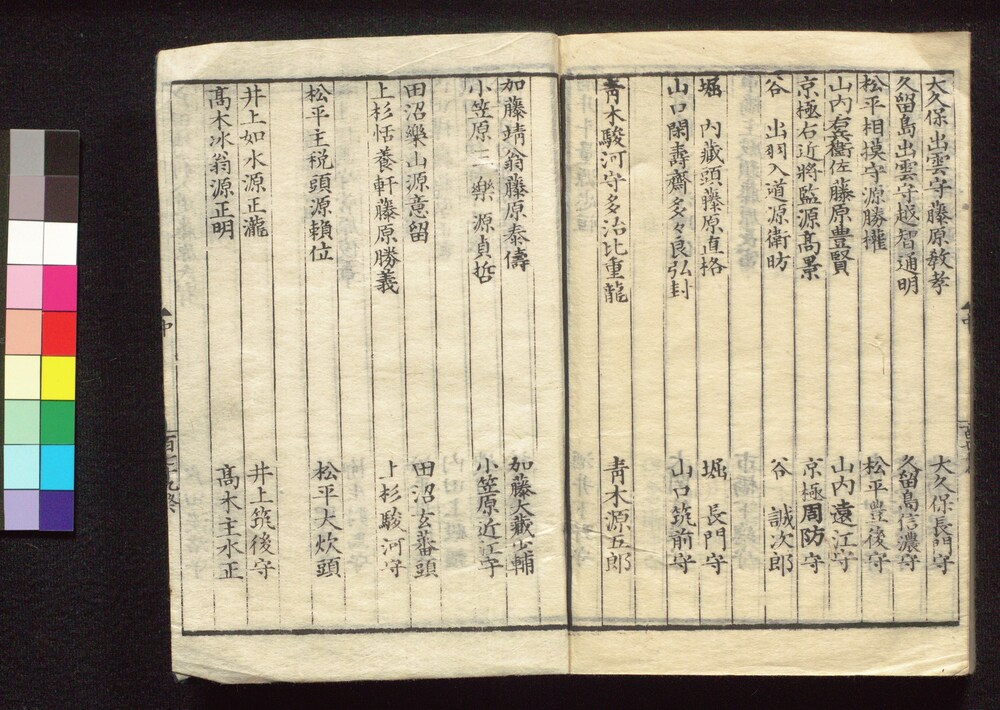 大久保出雲守藤原教孝　大久保長門守
久留島出雲守越智通明　久留島信濃守
松平相摸守源勝権　松平豊後守
山内右兵衛佐藤原豊賢　山内遠江守
京極右近將監源高景　京極周防守
谷　出羽入道源衛昉　谷　誠次郎
堀　内藏頭藤原直格　堀　長門守
山口閑壽齋多々良弘封　山口筑前守
青木駿河守多治比重龍　青木源五郎
加藤靖翁藤原泰儔　加藤大藏少輔
小笠原二樂源貞哲　小笠原近江守
田沼樂山源意留　田沼玄蕃頭
上杉恬養軒藤原勝義　上杉駿河守
松平主税頭源頼位　松平大炊頭
井上如水源正瀧　井上筑後守
髙木冰翁源正明　髙木主水正
中
百三九終